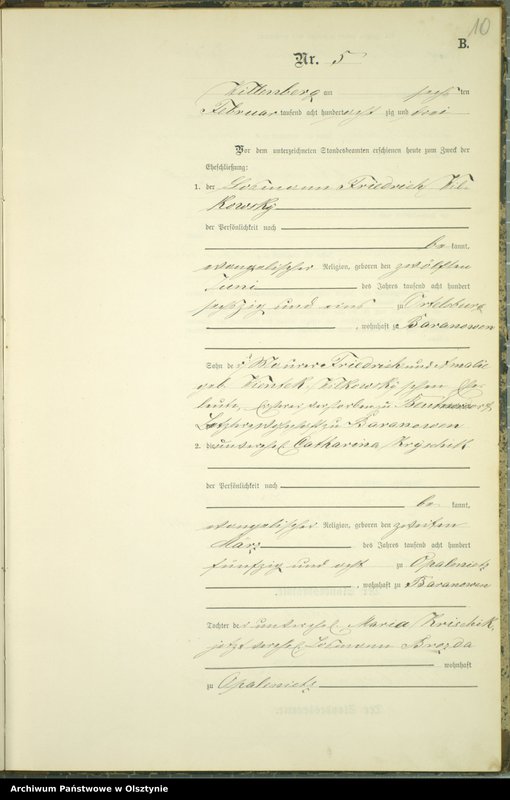 10
B.
Nr. 5
Willenberg am sechsten
Februar tausend acht hundert acht zig und drei
Vor dem unterzeichneten Standesbeamten erschienen heute zum Zweck der
Eheschließung:
1. der Losmann Friedrich Wil-
kowsky
der Persönlichkeit nach
be kannt,
evangelischer Religion, geboren den zwölften
Juni des Jahres tausend acht hundert
sechszig und eins zu Ortelsburg
, wohnhaft zu Baranowen
Sohn des Maurer Friedrich und Amalie
geb. Wilkowski'schen Ehe-
leute, Ersterer verstorben zu
Letztere wohnhaft zu Baranowen
2. die unverehel. Catharina Krzschek
der Persönlichkeit nach
be kannt,
evangelischer Religion, geboren den zweiten
März des Jahres tausend acht hundert
fünfzig und acht zu Opalenietz
, wohnhaft zu Baranowen
Tochter der unverehel. Maria Krischik,
jetzt verehel. Losmann Brozda
wohnhaft
zu Opalenietz
Archiwum Państwowe w Olsztynie